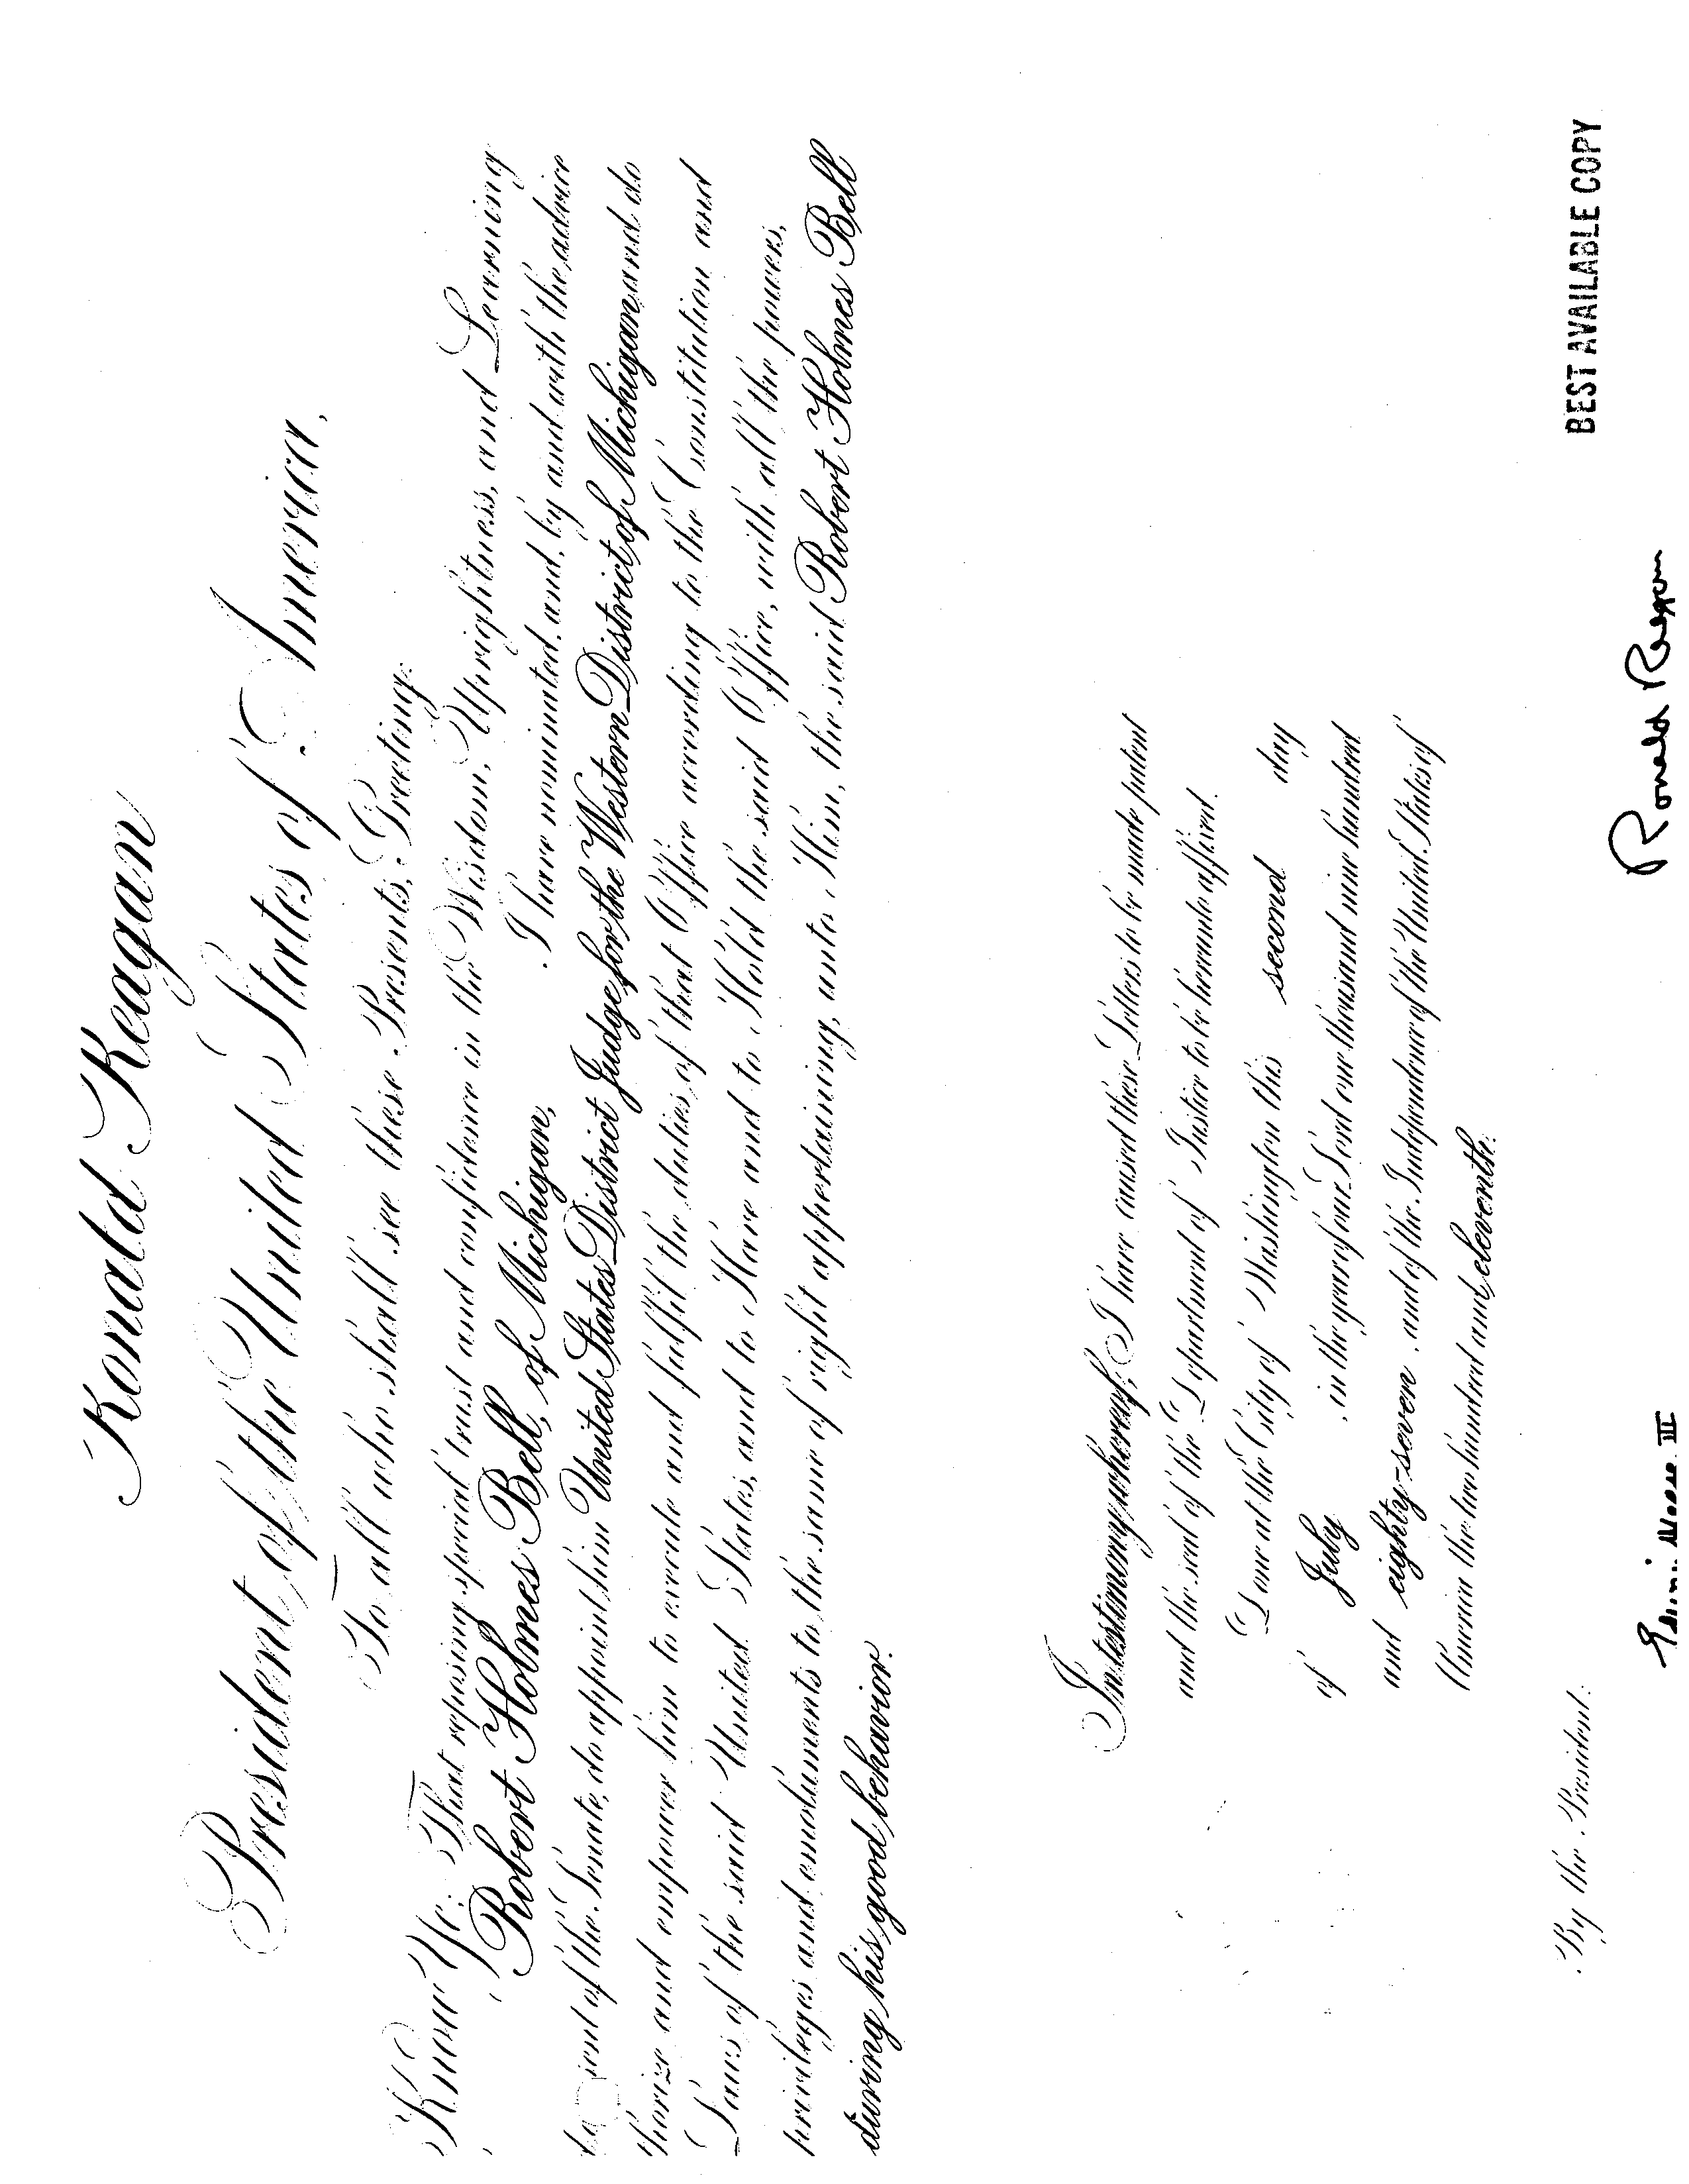 Ronald Reagan
President of the United States of America,
To all who shall see these Presents, Greeting:
Know Ye; That reposing special trust and confidence in the Wisdom, Uprightness, and Learning
of Robert Holmes Bell, of Michigan, I have nominated, and, by and with the advice
sent of the Senate, do appoint him United States District Judge for the Western District of Michigan and do
thorize and empower him to execute and fulfil the duties of that Office according to the Constitution and
Laws of the said United States, and to Have and to Hold the said Office, with all the powers,
privileges and emoluments to the same of right appertaining, unto Him, the said Robert Holmes Bell
during his good behavior.
In testimony whereof, I have caused these Letters to be made patent
and the seal of the Department of Justice to be hereunto affixed.
Done at the City of Washington this second day
of July , in the year of our Lord one thousand nine hundred
and eighty-seven , and of the Independence of the United States of
America the two hundred and eleventh.
By the President:
BEST AVAILABLE COPY
Ronald Reagan
Edwin Meese III